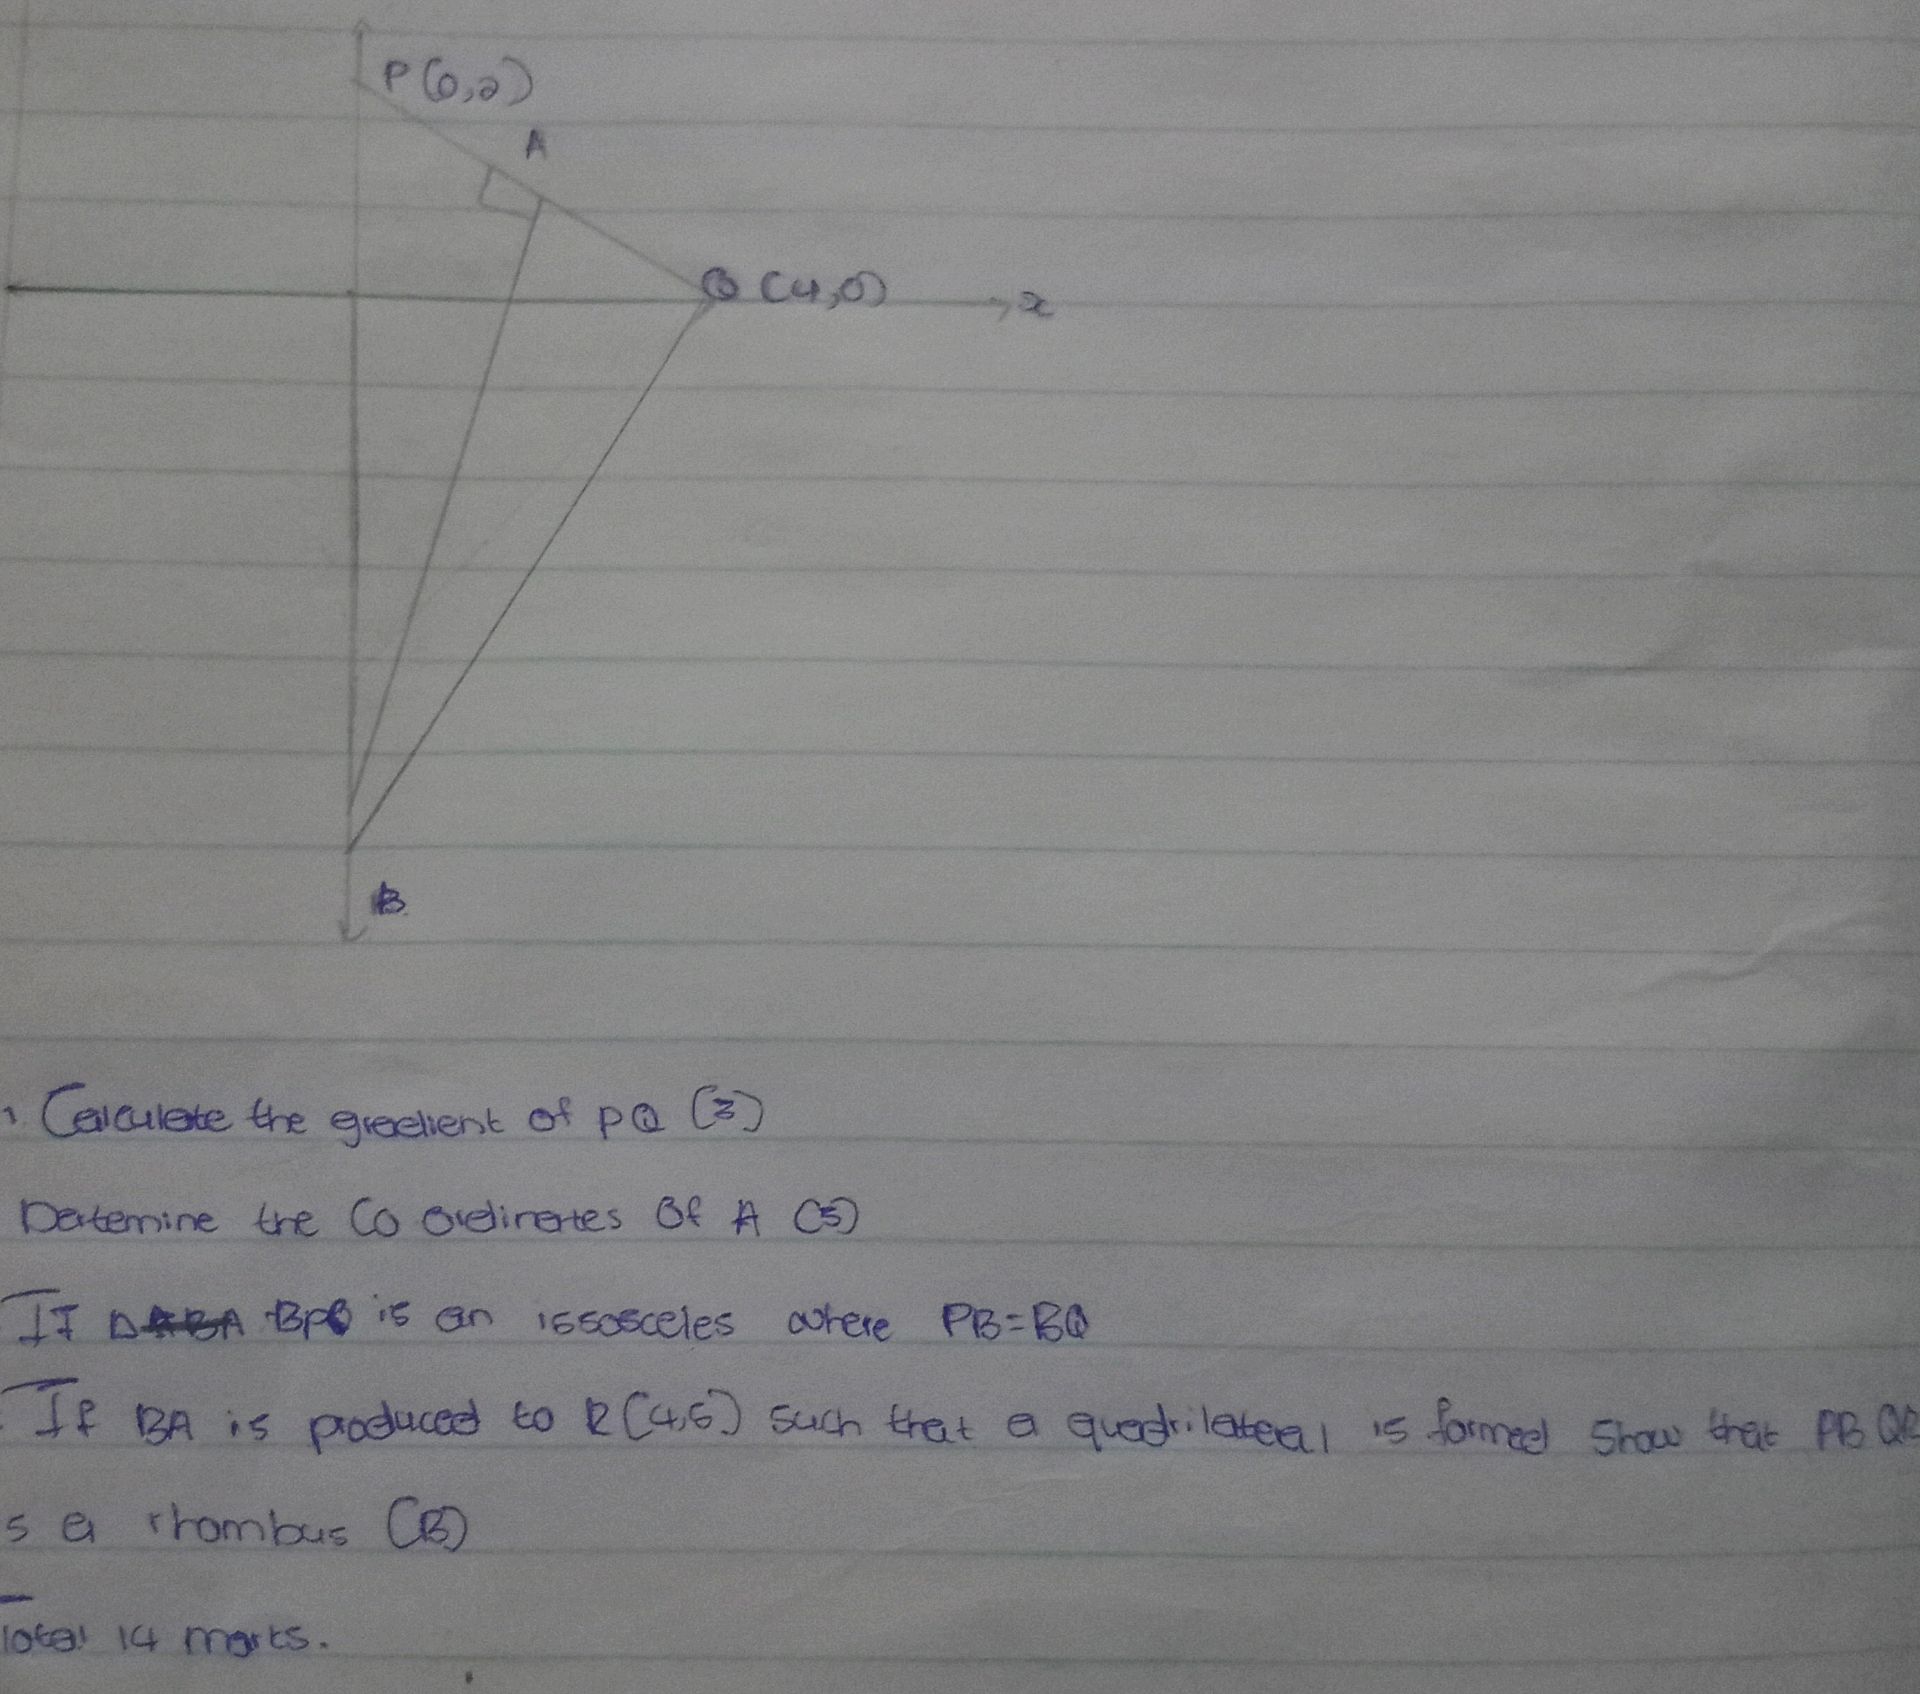 P(0,2)
A
Q (4,0)
x
B
1 Calculate the gradient of PQ (3)
Detemine the Co ordinates Of A (5)
If BPQ is an issosceles where PB=BQ
If BA is produced to R(4,5) such that a quadrilateral is formed show that PBQR
s a rhombus (B)
Total 14 marks.